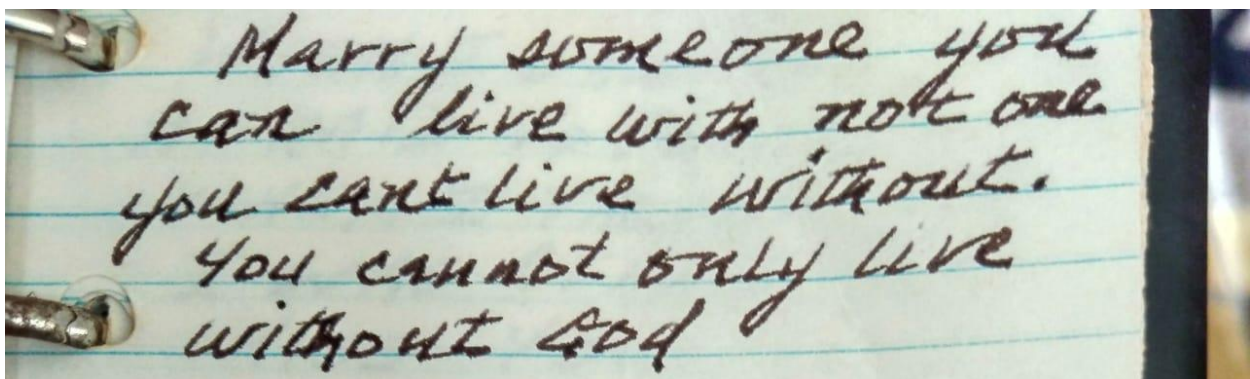 Marry someone you
can live with not one
you cant live without.
You cannot only live
without God